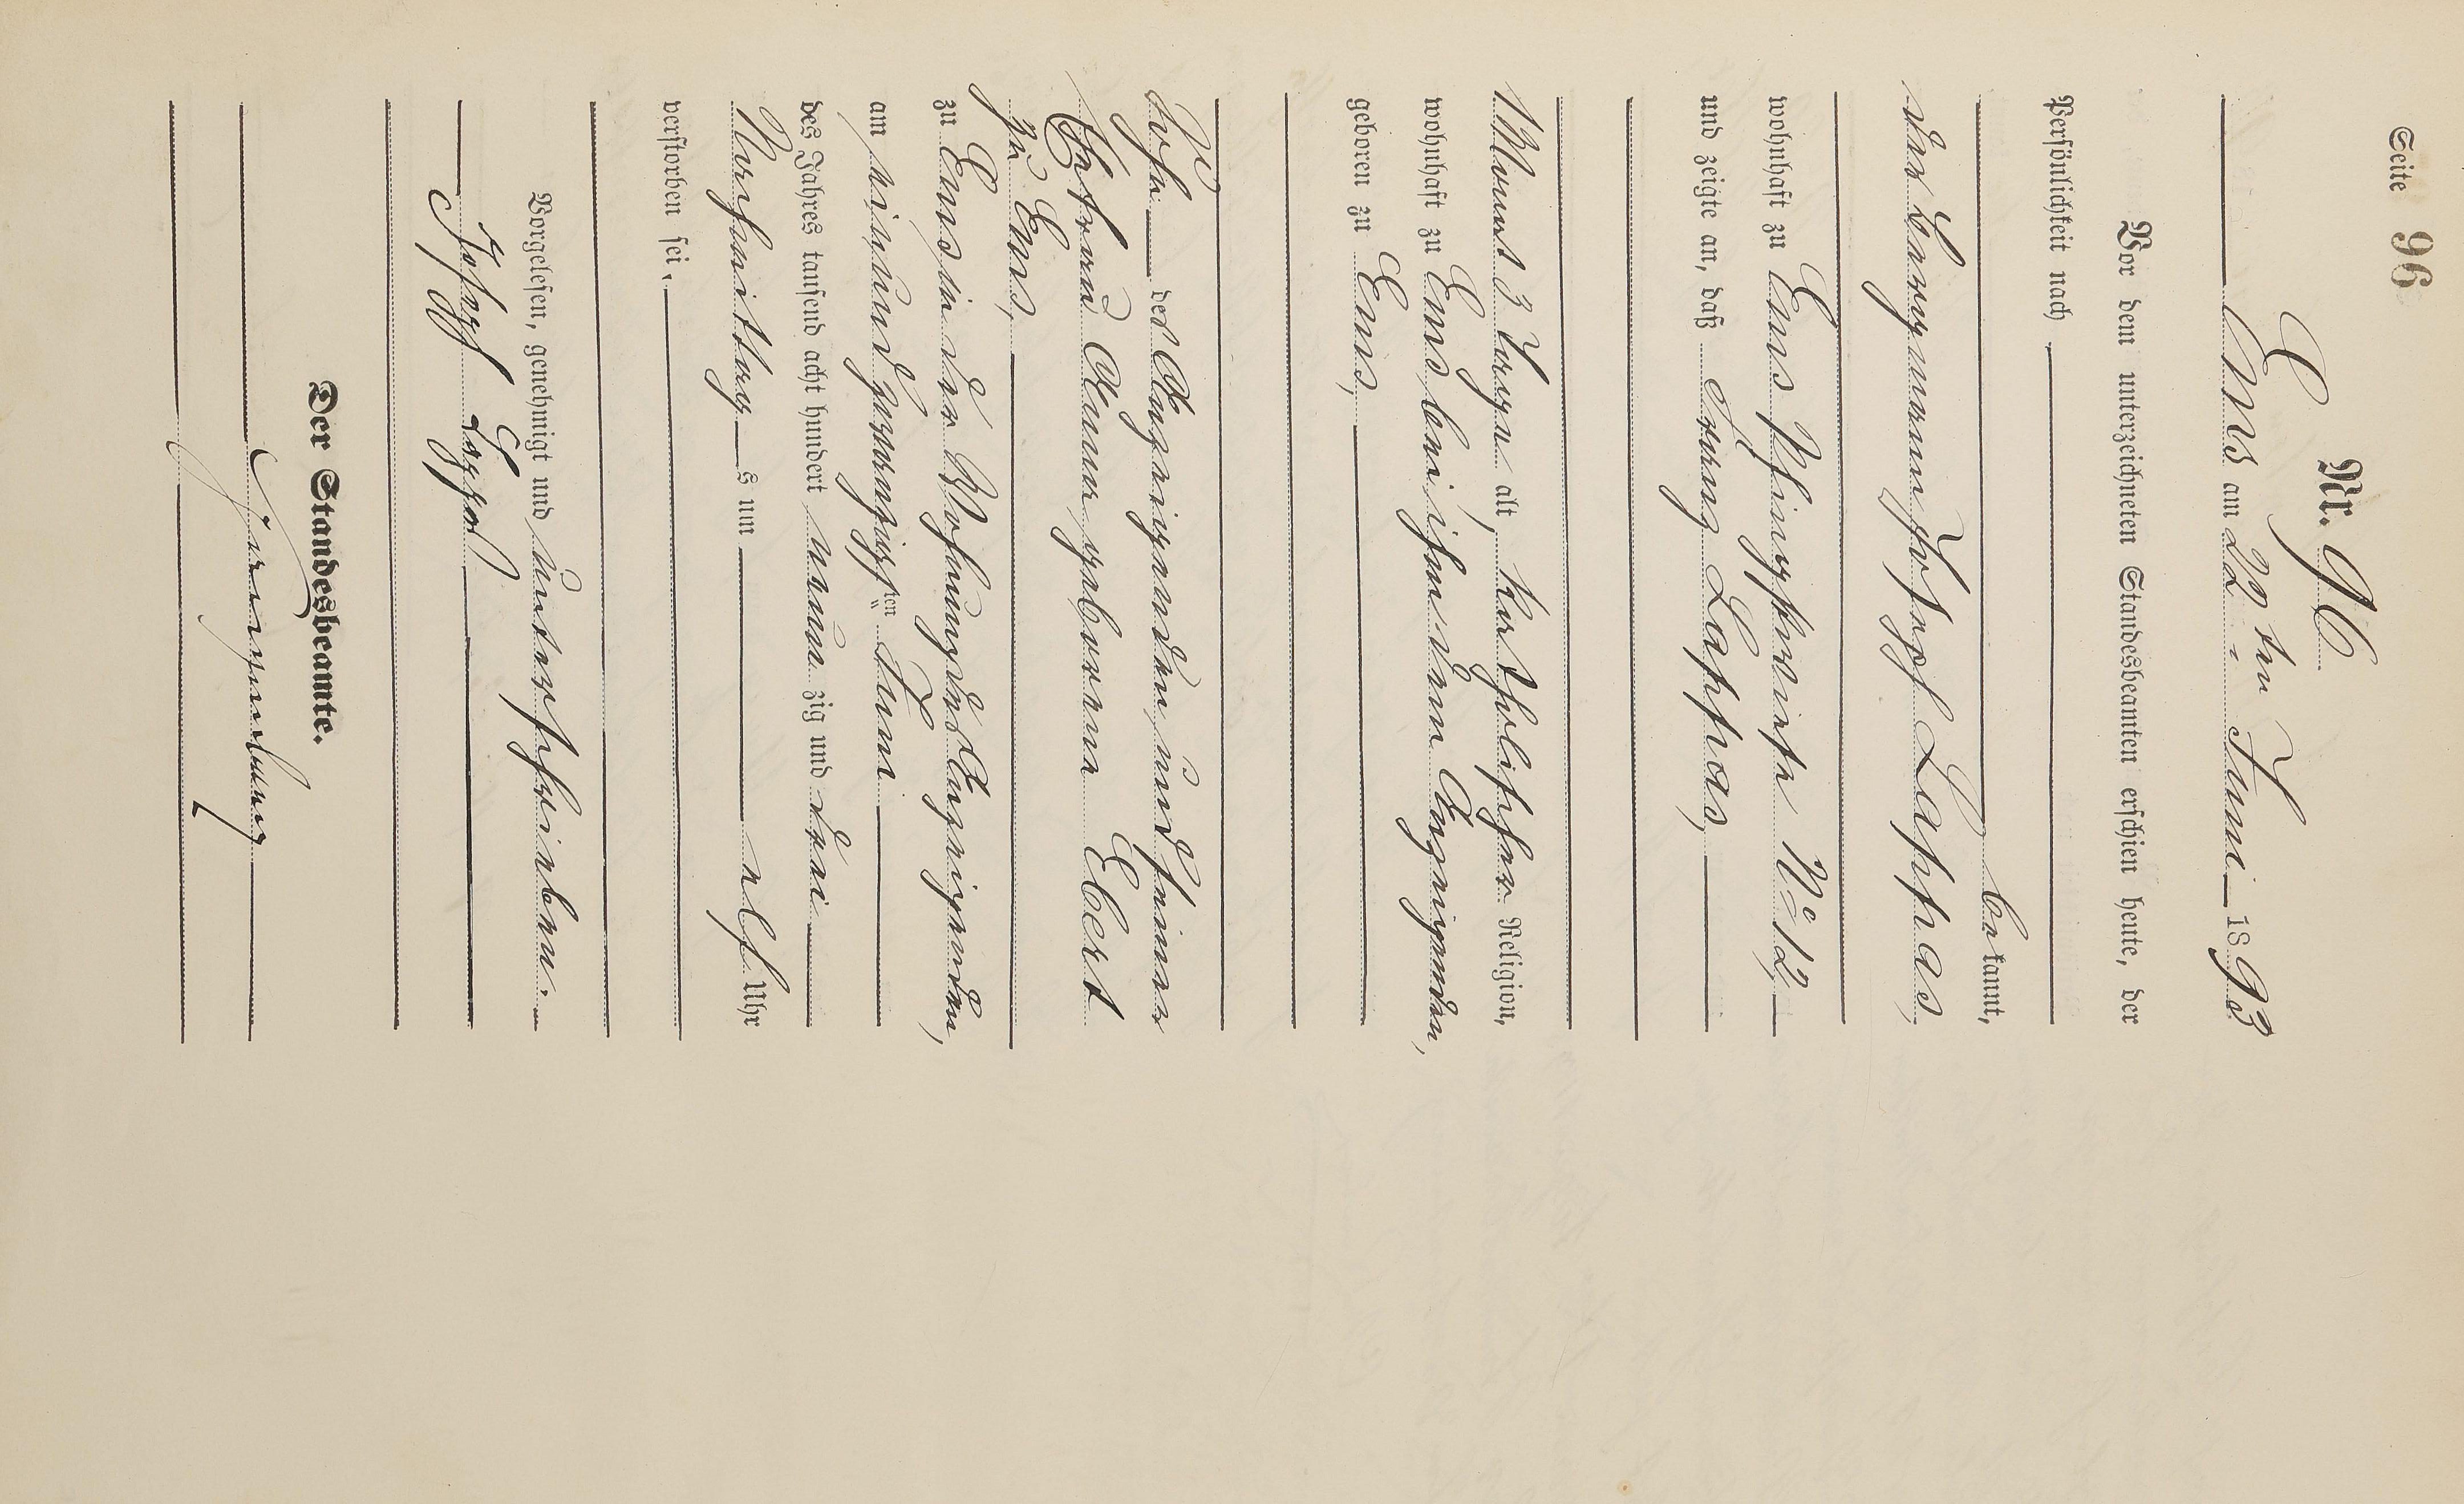 Seite 96
Nr. 96
Ems am 22ten Juni 1893
Vor dem unterzeichneten Standesbeamten erschien heute, der
Persönlichkeit nach
bekannt,
der Bergmann Josef Lappas,
wohnhaft zu Ems Pfingstwiese No 12,
und zeigte an, daß Franz Lappas,
1 Monat 3 Tage alt, katholischer Religion,
wohnhaft zu Ems bei ihm dem Anzeigenden,
geboren zu Ems,
Sohn des Anzeigenden, und seiner
Ehefrau Anna geborene Ebert
zu Ems,
zu Ems in der Wohnung des Anzeigenden,
am einundzwanzigsten Juni
des Jahres tausend acht hundert neunzig und drei
Vormittags um elf Uhr
verstorben sei.
Vorgelesen, genehmigt und unterschrieben.
Der Standesbeamte.